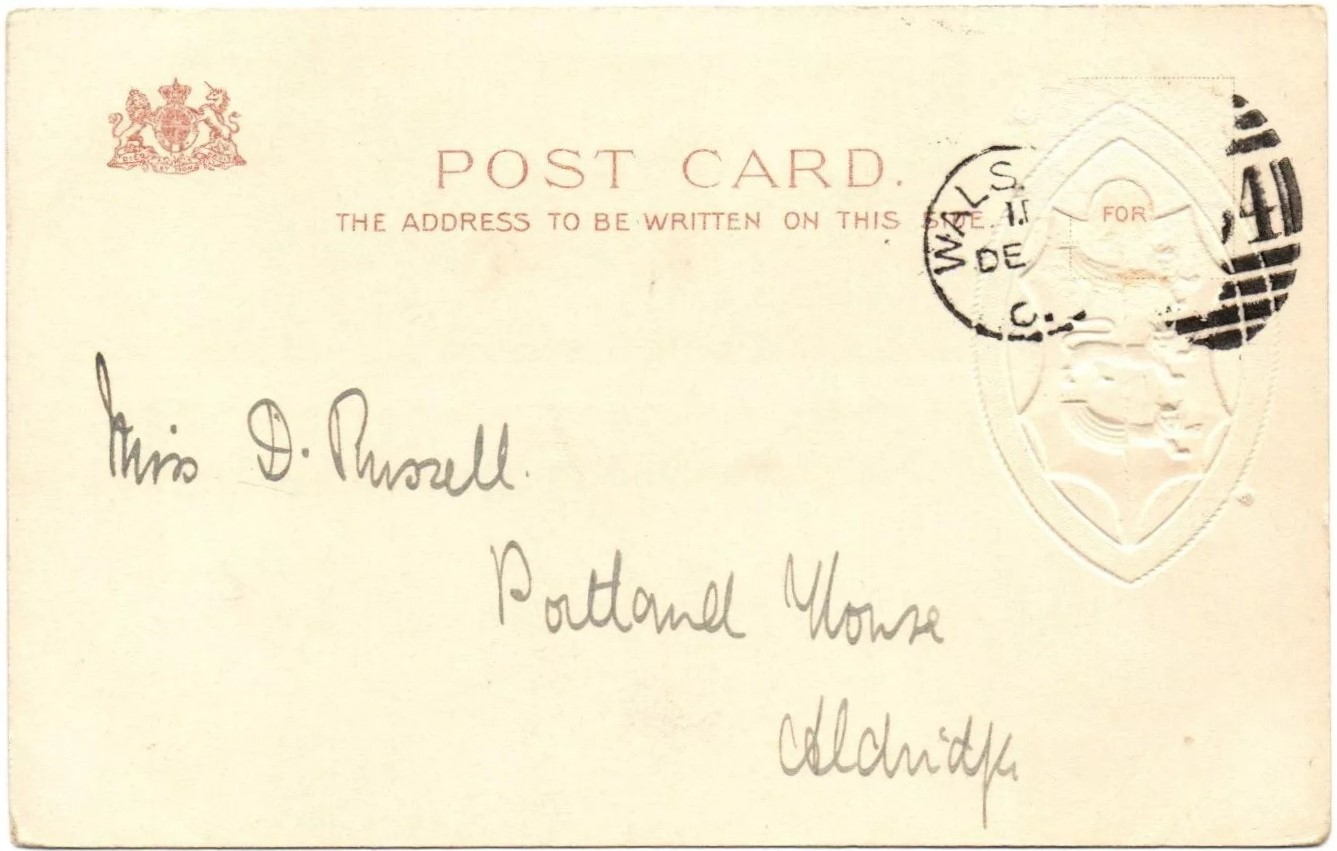 POST CARD.
THE ADDRESS TO BE WRITTEN ON THIS SIDE.
FOR
WALS
DE
C.
4
Miss D. Russell.
Portland House
Aldridge